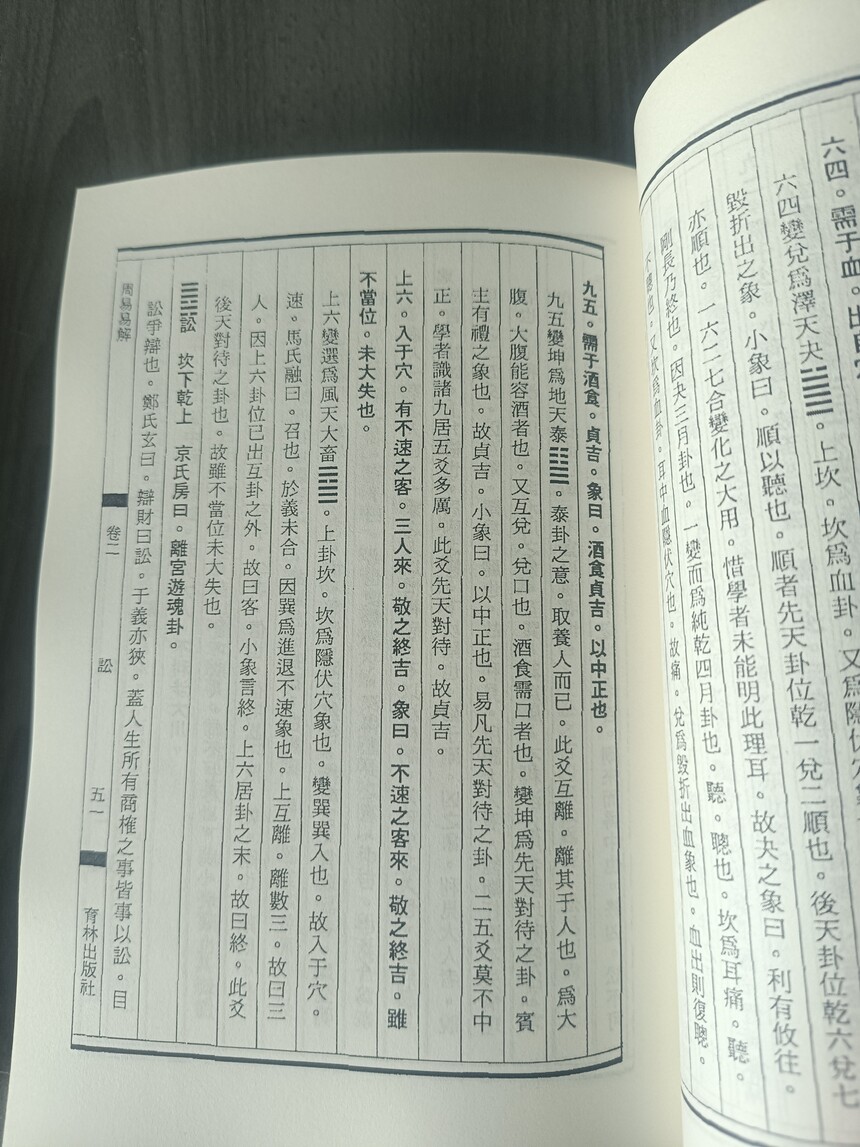 六四。需于血。出自穴
六四變兌爲澤天夬䷪。上坎。坎爲血卦。又爲隱伏穴象
毀折出之象。小象曰。順以聽也。順者先天卦位乾一兌二順也。後天卦位乾六兌七
亦順也。一六二七合變化之大用。惜學者未能明此理耳。故夬之象曰。利有攸往。
剛長乃終也。因夬三月卦也。一變而爲純乾四月卦也。聽。聰也。坎爲耳痛。聽。
不聰也。又坎爲血卦。耳中血隱伏穴也。故痛。兌爲毀折出血象也。血出則復聰。
九五。需于酒食。貞吉。象曰。酒食貞吉。以中正也。
九五變坤爲地天泰䷊。泰卦之意。取養人而已。此爻互離。離其于人也。爲大
腹。大腹能容酒者也。又互兌。兌口也。酒食需口者也。變坤爲先天對待之卦。賓
主有禮之象也。故貞吉。小象曰。以中正也。易凡先天對待之卦。二五爻莫不中
正。學者識諸九居五爻多厲。此爻先天對待。故貞吉。
上六。入于穴。有不速之客。三人來。敬之終吉。象曰。不速之客來。敬之終吉。雖
不當位。未大失也。
上六變選爲風天大畜䷈。上卦坎。坎爲隱伏穴象也。變巽巽入也。故入于穴。
速。馬氏融曰。召也。於義未合。因巽爲進退不速象也。上互離。離數三。故曰三
人。因上六卦位已出互卦之外。故曰客。小象言終。上六居卦之末。故曰終。此爻
後天對待之卦也。故雖不當位未大失也。
䷅訟 坎下乾上 京氏房曰。離宮遊魂卦。
訟爭辯也。鄭氏玄曰。辯財曰訟。于義亦狹。蓋人生所有商榷之事皆事以訟。目
周易易解 卷二 訟 五一 育林出版社